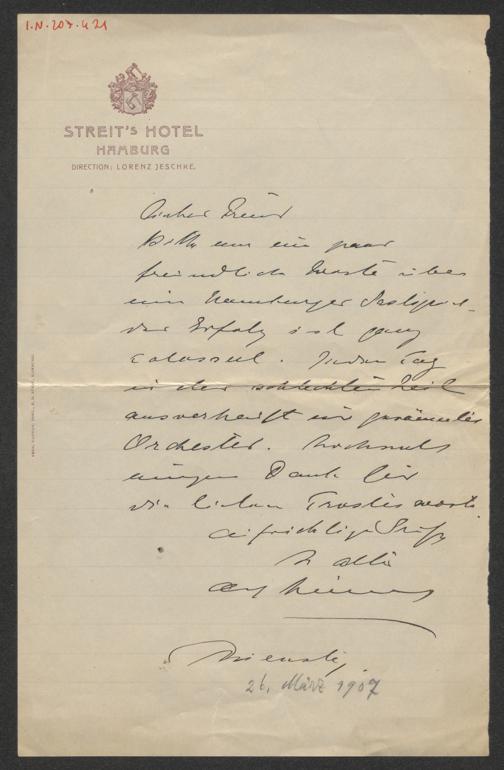 I.N. 207.421
STREIT'S HOTEL
HAMBURG
DIRECTION: LORENZ JESCHKE.
Lieber Freund
Bitte um ein paar
freundliche Worte über
mein Hamburger Gastspiel
der Erfolg ist ganz
colossal. Jeden Tag
in der schlechten Zeit
ausverkauft mit geräumten
Orchester. Nochmals
innigen Dank für
die lieben Trostesworte.
aufrichtige Grüße
an alle
Dienstag
26. März 1907